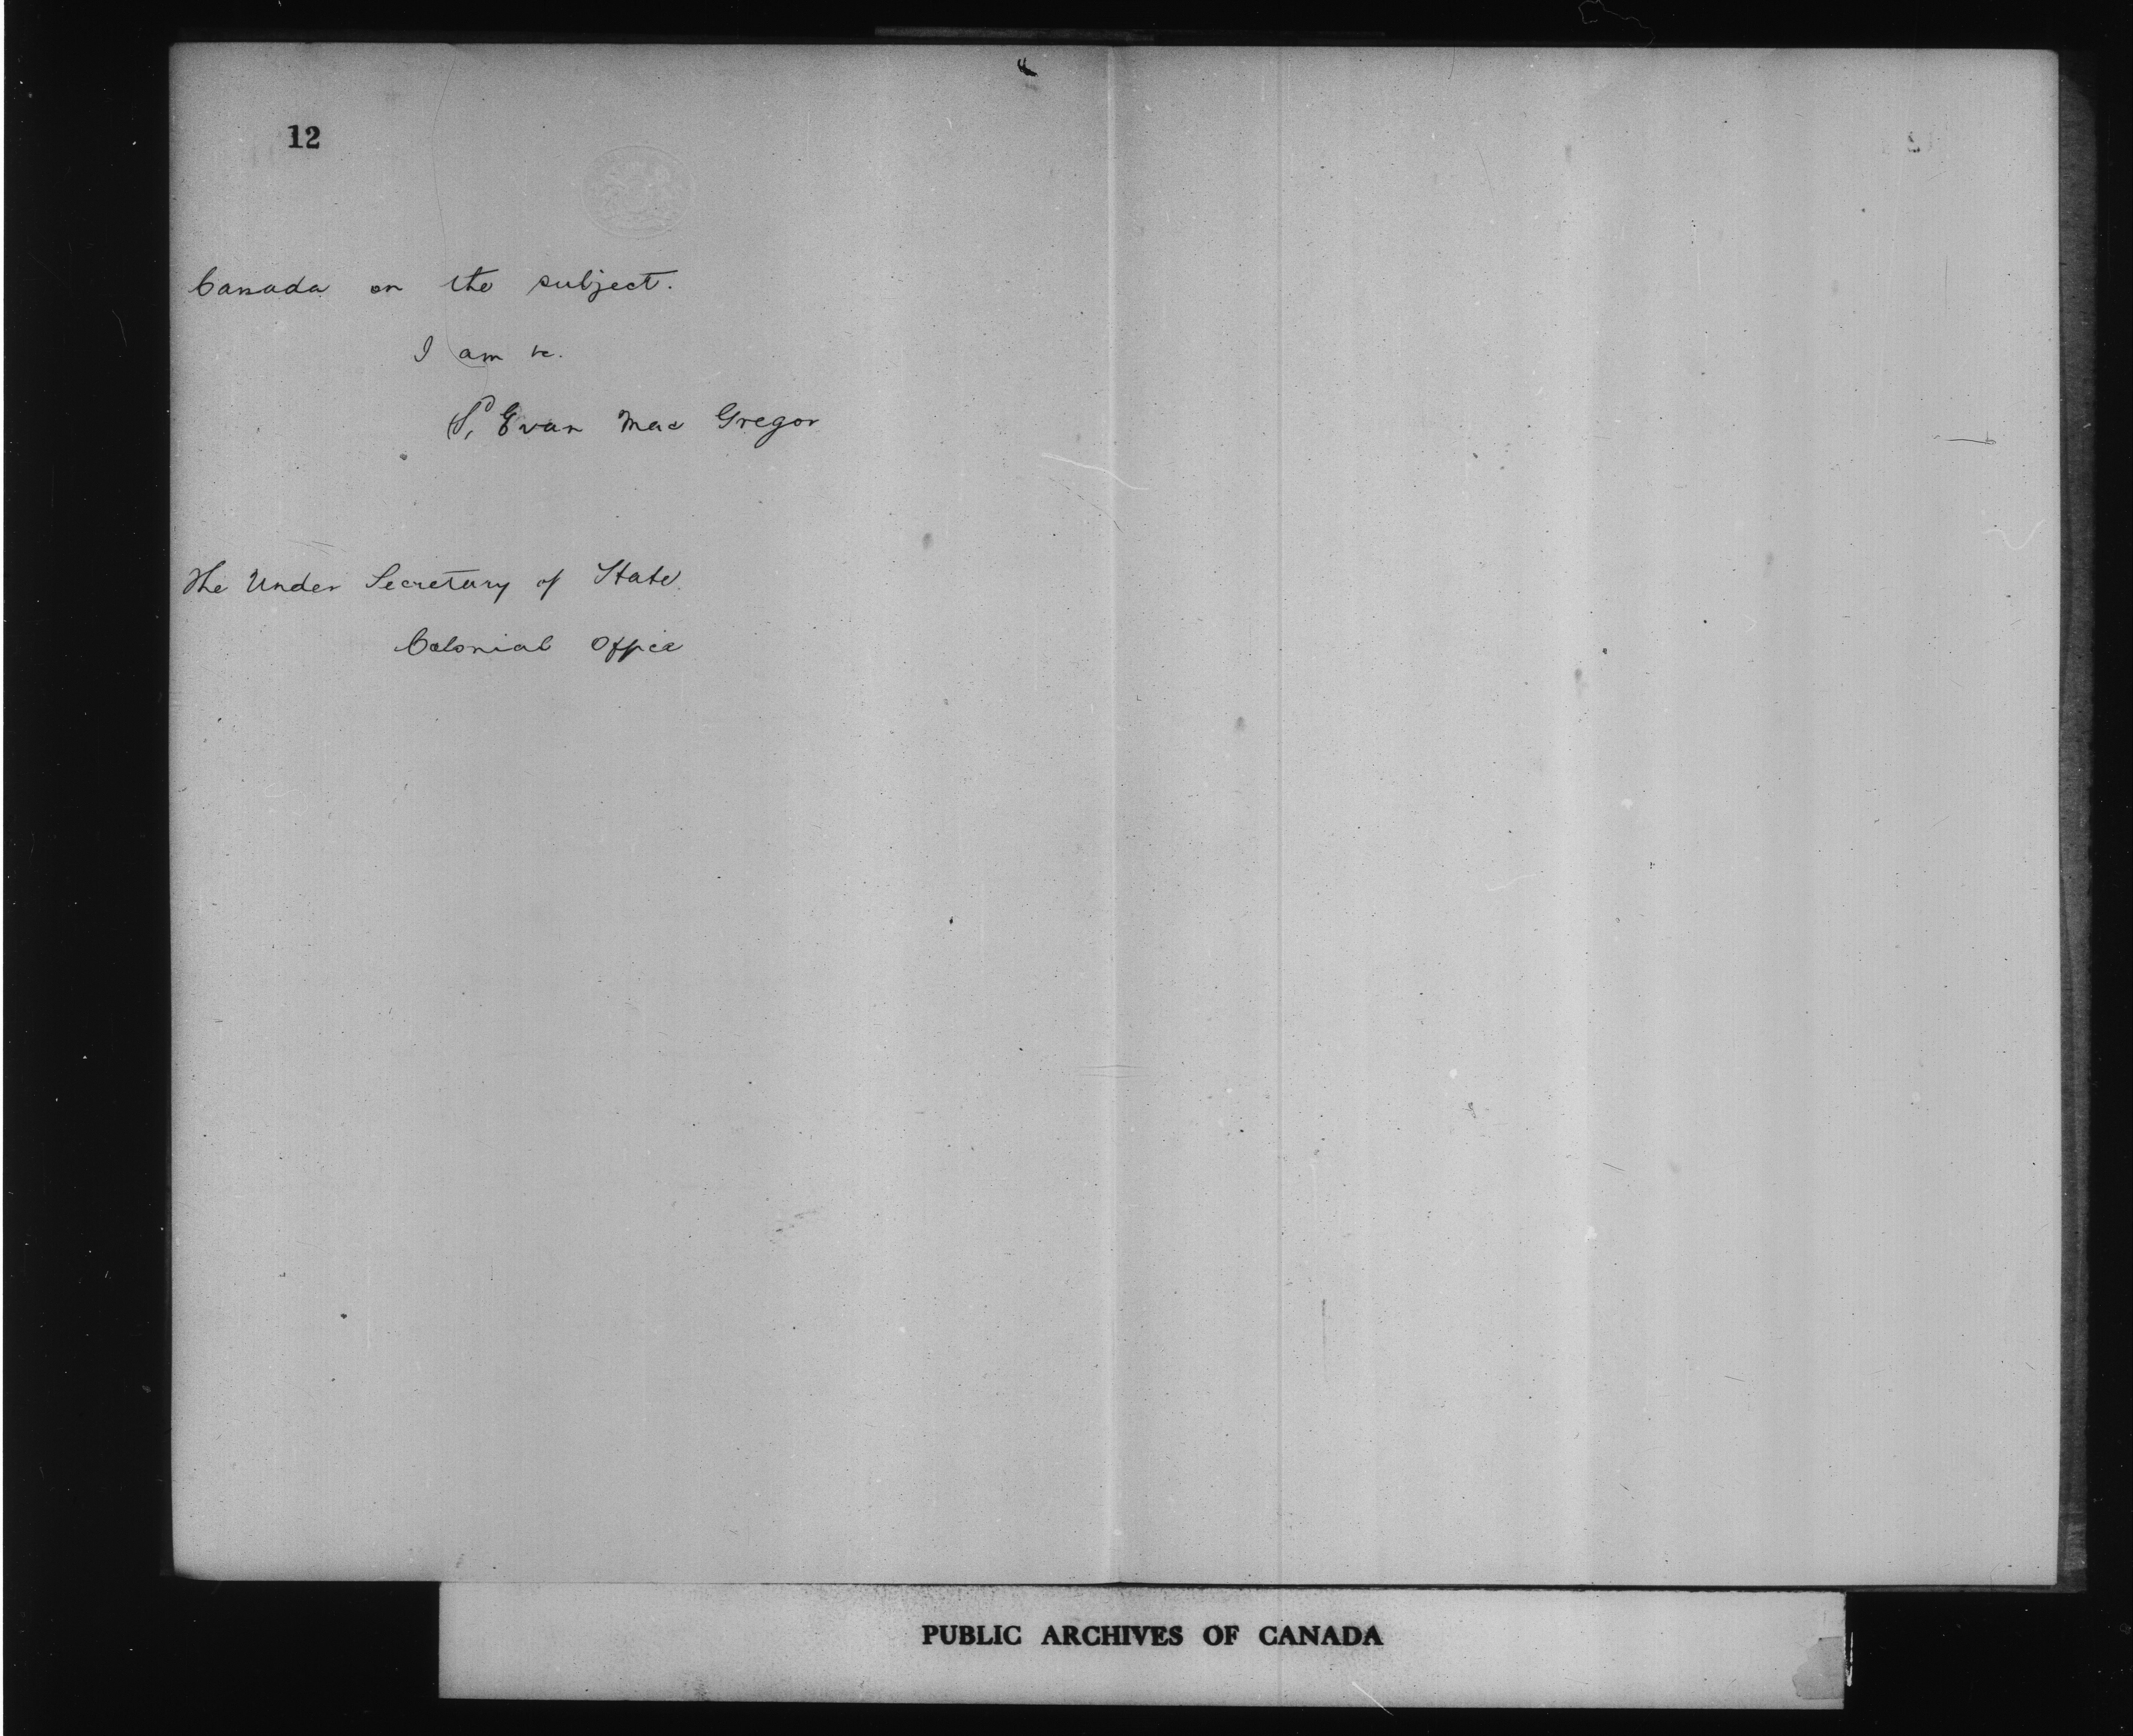 12
Canada on the subject.
I am &c.
Evan Mac Gregor
The Under Secretary of State
Colonial Office
PUBLIC ARCHIVES OF CANADA